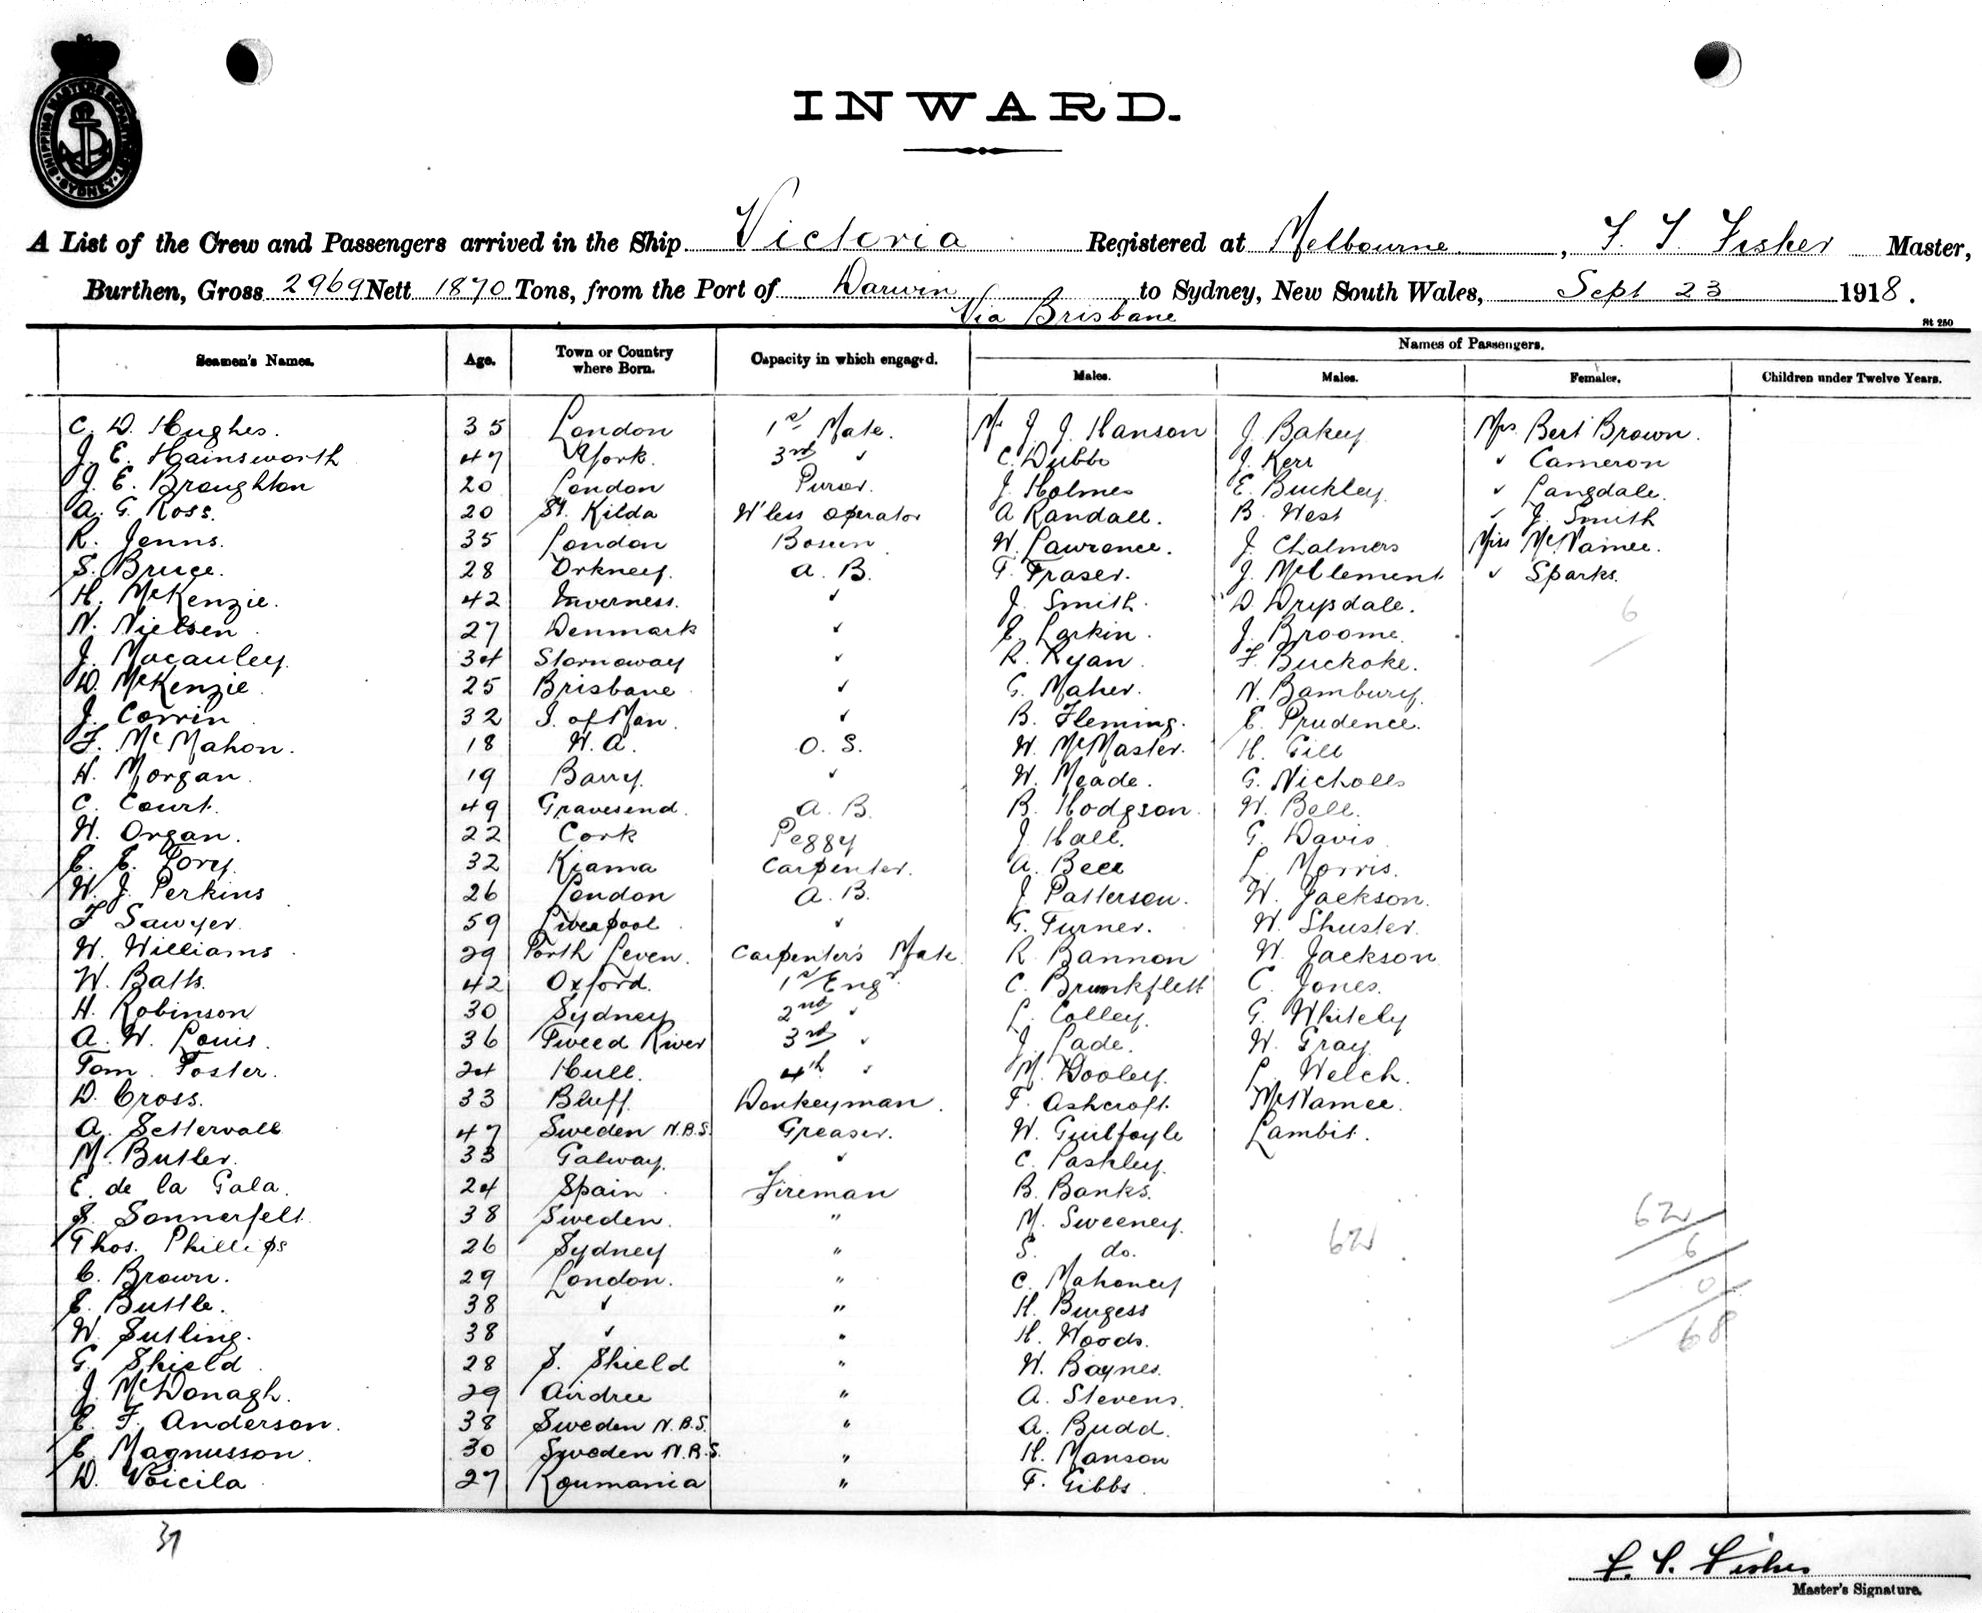 SHIPPING MASTERS DEPARTMENT SYDNEY
INWARD.
A List of the Crew and Passengers arrived in the Ship Victoria Registered at Melbourne, F. T. Fisher Master,
Burthen, Gross 2969 Nett 1870 Tons, from the Port of Darwin to Sydney, New South Wales, Sept 23 1918.
Via Brisbane
St 250
Names of Passengers.
Seamen's Names. Age. Town or Country where Born. Capacity in which engaged. Males. Males. Females. Children under Twelve Years.
C. D. Hughes. 35 London 1st Mate. Mr J. J. Hanson J. Bakey Mrs Bert Brown.
J. E. Hainsworth 47 York. 3rd ✓ C. Dubbs J. Kerr ✓ Cameron
J. E. Broughton 20 London Purser. J. Holmes E. Buckley. ✓ Langdale.
A. G. Ross. 20 St. Kilda W'less operator A Randall. B. West ✓ J. Smith
R. Jenns. 35 London Bosun W. Lawrence. J. Chalmers Miss McNamee.
S. Bruce. 28 Orkney. A. B. T. Fraser. J. McClement ✓ Sparks.
H. McKenzie. 42 Inverness. ✓ J. Smith. D. Drysdale.
N. Nielsen 27 Denmark ✓ E. Larkin. J. Broome. 6
J. Macauley. 34 Stornoway ✓ R. Ryan. F. Buckoke.
D. McKenzie. 25 Brisbane ✓ G. Maher. N. Bambury.
J. Corrin 32 I. of Man. ✓ B. Fleming. E. Prudence.
F. McMahon. 18 W. A. O. S. W. McMaster. H. Gill
H. Morgan. 19 Barry. ✓ W. Meade. G. Nicholls
C. Court. 49 Gravesend. A. B. R. Hodgson. W. Bell.
W. Organ. 22 Cork Peggy J. Hall. G. Davis
E. E. Tory. 32 Kiama Carpenter. A. Bell L. Morris.
W. J. Perkins 26 London A. B. J. Patterson. W. Jackson.
F Sawyer. 59 Liverpool ✓ G. Turner. W. Shuster.
W. Williams. 29 Porth Leven. Carpenter's Mate. R. Bannon W. Jackson
W. Batts. 42 Oxford. 1st Engr. C. Brunkflett C. Jones.
H. Robinson 30 Sydney 2nd ✓ L. Colley. G. Whitely
A. W. Louis. 36 Tweed River 3rd ✓ J. Lade. W. Gray
Tom Foster. 24 Hull. 4th ✓ M. Dooley. L. Welch.
D. Cross. 33 Bluff. Donkeyman. T. Ashcroft. McNamee.
A. Settervall 47 Sweden N.B.S. Greaser. W. Guilfoyle Lambit.
M. Butler. 33 Galway. ✓ C. Pashley.
E. de la Gala. 24 Spain. Fireman B. Banks.
S. Sonnerfelt 38 Sweden. " M. Sweeney. 62
Thos. Phillips 26 Sydney " S. do. 62 6
C. Brown. 29 London. " C. Mahoney 0
E. Buttle. 38 ✓ " H. Burgess
W. Sutling. 38 ✓ " H. Woods. 68
G. Shield 28 S. Shield " W. Baynes.
J. McDonagh. 29 Airdree " A. Stevens.
E. F. Anderson. 38 Sweden N.B.S. " A. Budd.
E. Magnusson. 30 Sweden N.B.S. " H. Manson
D. Voicila 27 Roumania " T. Gibbs.
37
F. T. Fisher
Master's Signature.